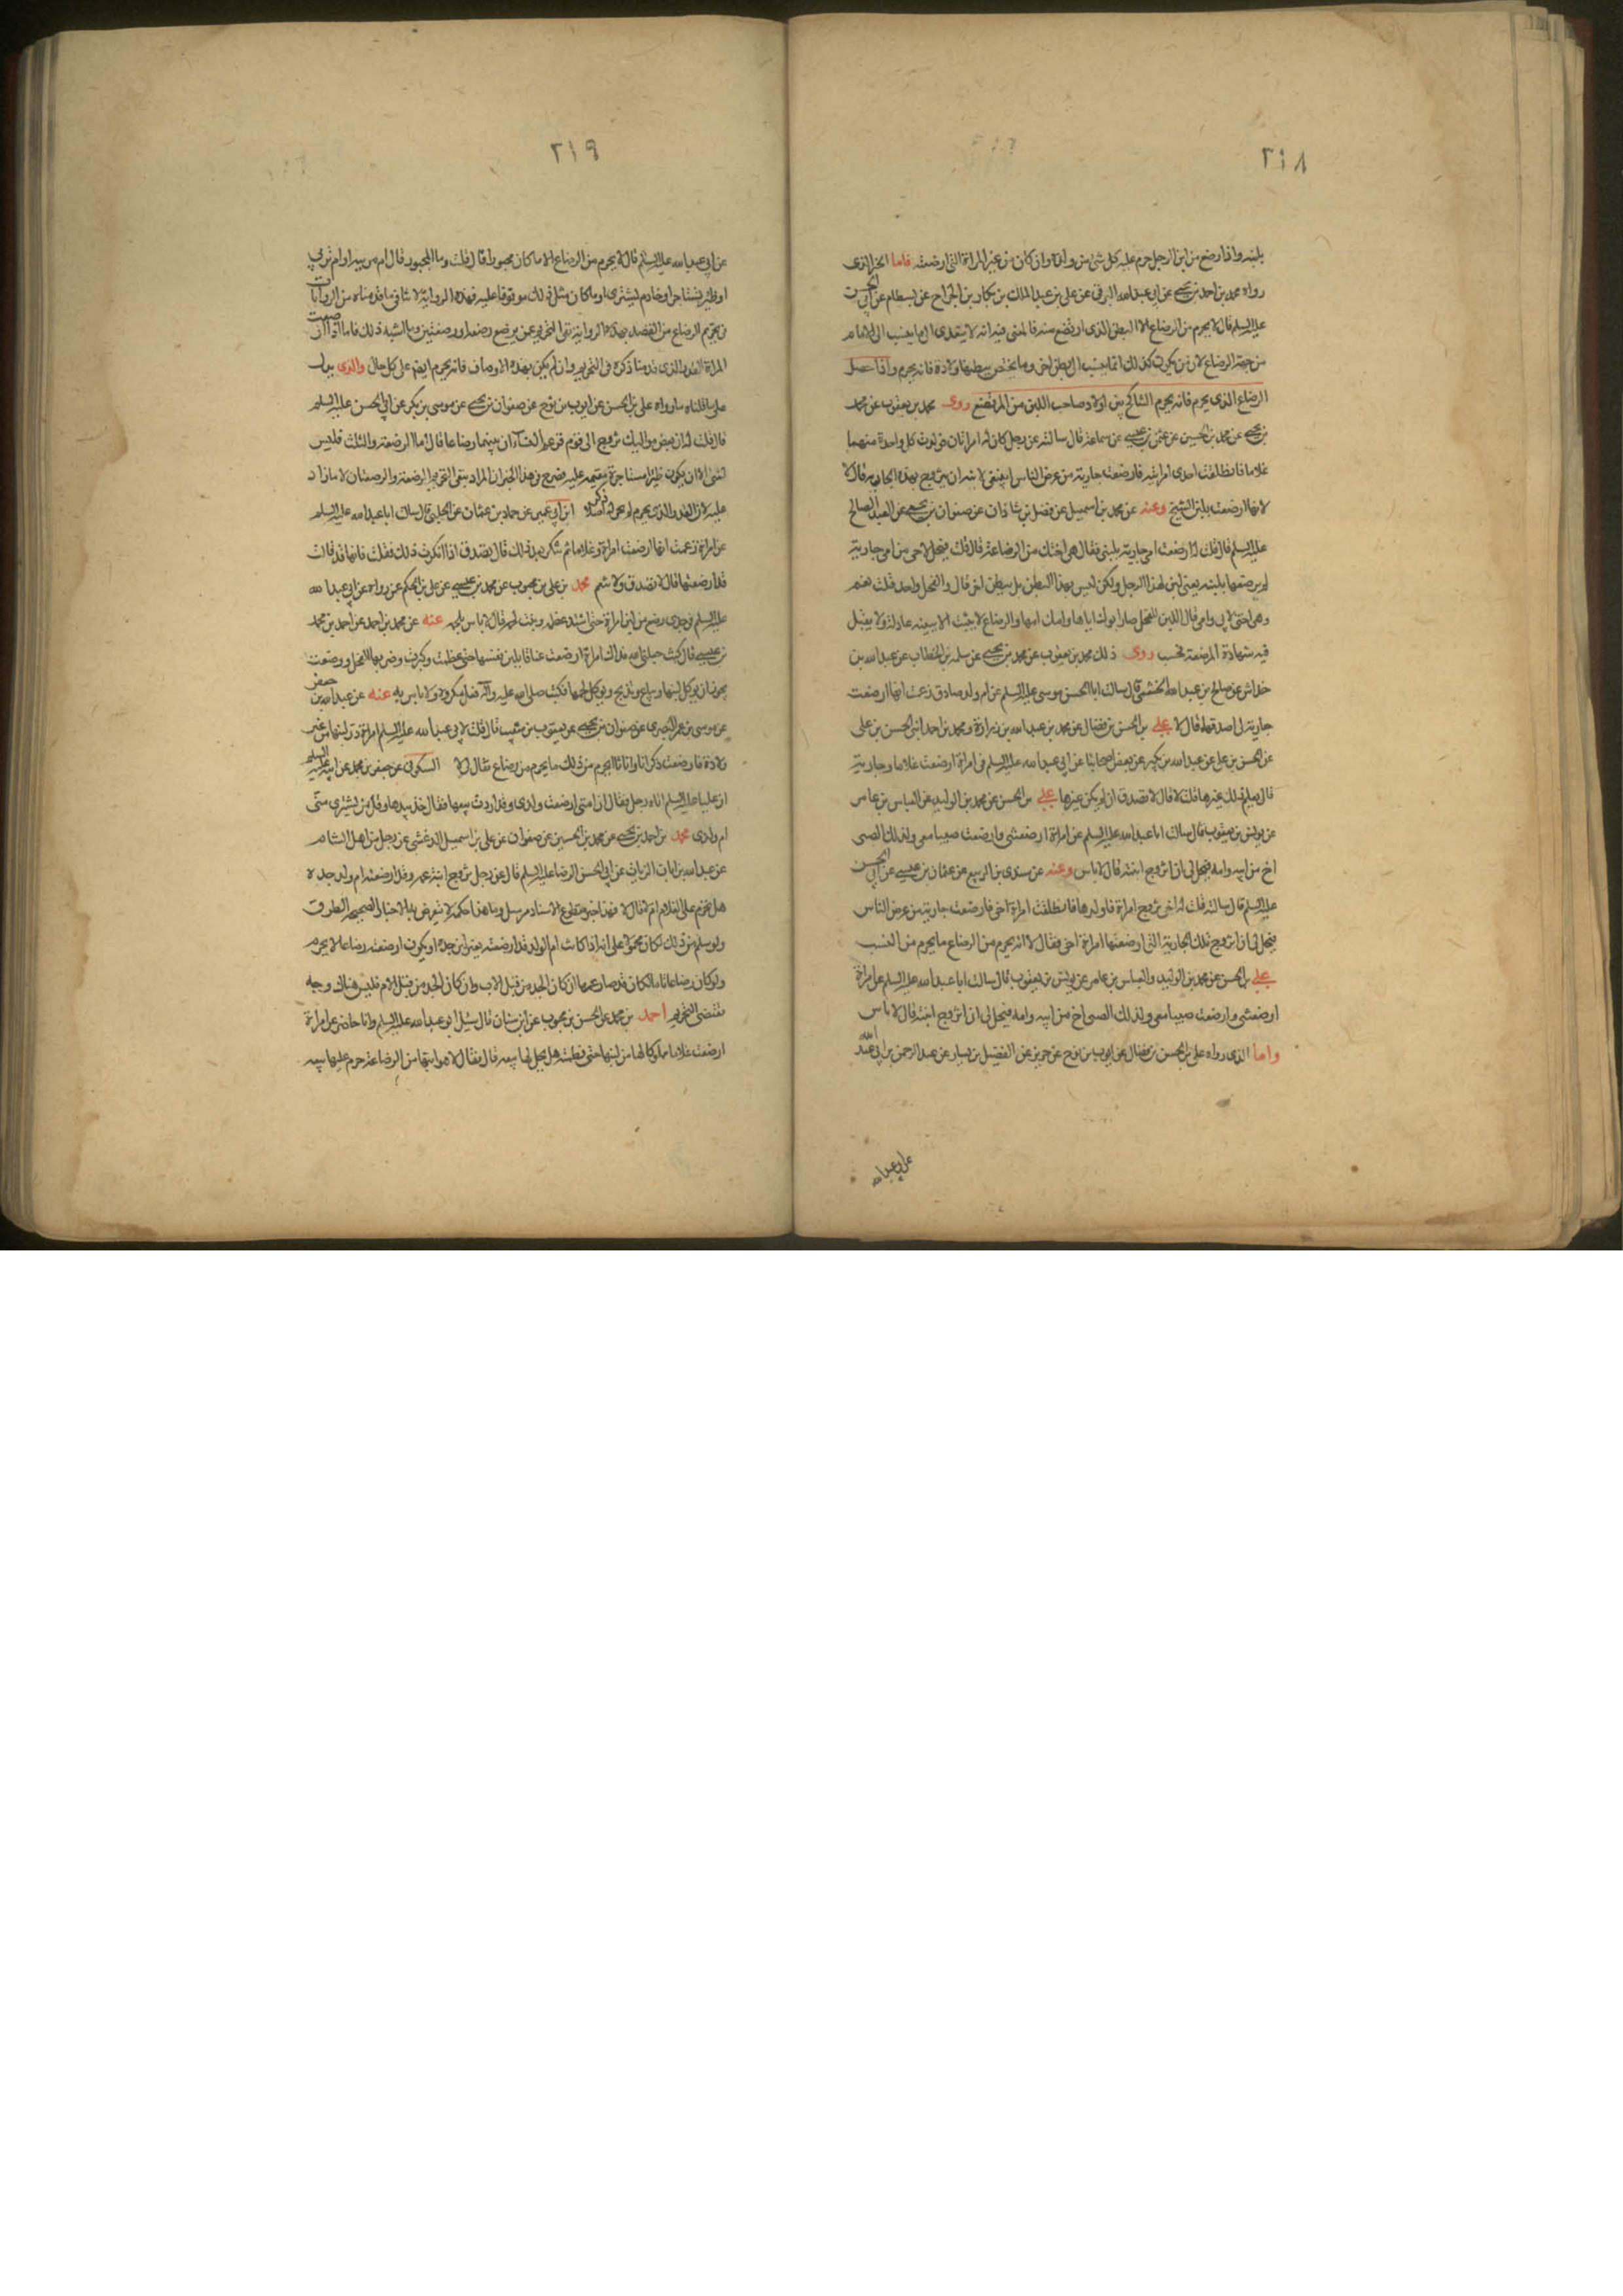 ٢١٨
بلبنه واذا رضع من لبن الرجل حرم عليه كل شئ من ولده وان كان من غير المراة التى ارضعته فاما الخبر الذى
رواه محمد بن احمد بن يحيى عن ابى عبد الله البرقى عن على بن عبد الملك بن بكار بن الجراح عن بسطام عن ابى الحسن
عليه السلم قال لا يحرم من الرضاع الا البطن الذى ارتضع منه فالمعنى فيه انه لا يتعدى الى ما ينتسب الى الام
من جهة الرضاع لان من يكون كذلك انما ينتسب الى بطن اخر وما يختص ببطنها ولادة فانه يحرم واذا حصل
الرضاع الذى يحرم فانه يحرم التناكح بين اولاد صاحب اللبن من المرتضع روى محمد بن يعقوب عن محمد
بن يحيى عن محمد بن الحسين عن عثمن بن عيسى عن سماعة قال سالته عن رجل كان له امراتان فولدت كل واحدة منهما
غلاما فانطلقت احدى امراتيه فارضعت جارية من عرض الناس اينبغى لابنه ان يتزوج بهذه الجارية قال لا
لانها ارضعت بلبن الشيخ وعنه عن محمد بن اسمعيل عن فضل بن شاذان عن صفوان بن يحيى عن العبد الصالح
عليه السلم قال قلت له ارضعت امى جارية بلبنى فقال هى اختك من الرضاعة قال قلت فيحل لاخى من امى جارية
لم يرضعها بلبنه يعنى لبن لهذا الرجل ولكن ليس بهذا البطن بل ببطن اخر قال والفحل واحد قلت نعم
وهى اختى لابى وامى قال اللبن للفحل صار ابوك اباها وامك امها والرضاع لا يثبت الا ببينه عادلة ولا يقبل
فيه شهادة المرضعة فحسب روى ذلك محمد بن يعقوب عن محمد بن يحيى عن سلمة بن الخطاب عن عبد الله بن
خداش عن صالح بن عبد الله الخثعمى قال سالت ابا الحسن موسى عليه السلم عن ام ولد صادق زعمت انها ارضعت
جارية لى اصدقها قال لا على بن الحسن بن فضال عن محمد بن عبد الله بن زرارة ومحمد بن احمد ابنى الحسن بن على
عن الحسن بن على عن عبد الله بن بكير عن بعض اصحابنا عن ابى عبد الله عليه السلم فى امراة ارضعت غلاما وجارية
قال يعلم ذلك غيرها قلت لا قال لا تصدق ان لم يكن غيرها على بن الحسن عن محمد بن الوليد عن العباس بن عامر
عن يونس بن يعقوب قال سالت ابا عبد الله عليه السلم عن امراة ارضعتنى وارضعت صبيا معى ولذلك الصبى
اخ من ابيه وامه فيحل لى ان اتزوج ابنته قال لا باس وعنه عن سندى بن الربيع عن عثمان بن عيسى عن ابى الحسن
عليه السلم قال سالته قلت له اخى تزوج امراة فاولدها فانطلقت امراة اخى فارضعت جارية من عرض الناس
فيحل لى ان اتزوج تلك الجارية التى ارضعتها امراة اخى فقال لا انه يحرم من الرضاع ما يحرم من النسب
على بن الحسن عن محمد بن الوليد والعباس بن عامر عن يونس بن يعقوب قال سالت ابا عبد الله عليه السلم عن امراة
ارضعتنى وارضعت صبيا معى ولذلك الصبى اخ من ابيه وامه فيحل لى ان اتزوج ابنته قال لا باس
واما الذى رواه على بن الحسن بن فضال عن ايوب بن نوح عن حريز عن الفضيل بن يسار عن عبد الرحمن بن ابى عبد الله
عن ابى عبد الله
٢١٩
عن ابى عبد الله عليه السلم قال لا يحرم من الرضاع الا ما كان مجبورا قال قلت وما المجبور قال ام مربية او ام تربى
او ظئر تستاجر او خادم تشترى او ما كان مثل ذلك موقوفا عليه فهذه الرواية لا تنافى ما قدمناه من الروايات
فى تحريم الرضاع من القصد بهذه الرواية نفى التحريم عمن يرضع رضعة او رضعتين وما اشبه ذلك فاما اذا ارضعت
المراة القدر الذى قدمنا ذكره فى التحريم وان لم يكن بهذه الاوصاف فانه يحرم ايضا على كل حال والذى يدل
على ما قلناه ما رواه على بن الحسن عن ايوب بن نوح عن صفوان بن يحيى عن موسى بن بكر عن ابى الحسن عليه السلم
قال قلت له ان بعض مواليك تزوج الى قوم فزعم النساء ان بينهما رضاعا قال اما الرضعة والثلث فليس
بشئ الا ان يكون ظئرا مستاجرة مقيمة عليه فصح فى هذا الخبر ان المراد بنفى التحريم الرضعة والرضعتان لا ما زاد
عليه لان القدر الذى يحرم لم يجر له ذكر اصلا ابن ابى عمير عن حماد بن عثمان عن الحلبى قال سالت ابا عبد الله عليه السلم
عن امراة زعمت انها ارضعت امراة وغلاما ثم تنكر بعد ذلك قال تصدق اذا انكرت ذلك فقلت فانها قد قالت
قد ارضعتهما قال لا تصدق ولا تنعم محمد بن على بن محبوب عن محمد بن عيسى عن على بن الحكم عن رواه عن ابى عبد الله
عليه السلم فى جدى رضع من لبن امراة حتى اشتد عظمه ونبت لحمه قال لا باس بلحمه عنه عن محمد بن احمد عن احمد بن محمد
بن عيسى قال كتبت جعلنى الله فداك امراة ارضعت عناقا بلبن نفسها حتى فطمت وكبرت وضربها الفحل ووضعت
يجوز ان يوكل لبنها ويباع وتذبح ويوكل لحمها فكتب صلى الله عليه وآله فعل مكروه ولا باس به عنه عن عبد الله بن جعفر
عن موسى بن عمر البصرى عن صفوان بن يحيى عن يعقوب بن شعيب قال قلت لابى عبد الله عليه السلم امراة در لبنها من غير
ولادة فارضعت ذكرانا واناثا ايحرم من ذلك ما يحرم من رضاع فقال لا السكونى عن جعفر بن محمد عن ابيه عليه السلم
ان عليا عليه السلم اتاه رجل فقال ان امتى ارضعت ولدى وقد اردت بيعها فقال خذ بيدها وقل من يشترى منى
ام ولدى محمد بن احمد بن يحيى عن محمد بن الحسين عن صفوان عن على بن اسمعيل الدغشى عن رجل من اهل الشام
عن عبد الله بن ابان الزيات عن ابى الحسن الرضا عليه السلم قال عن رجل تزوج ابنة عمه وقد ارضعته ام ولد جده
هل تحرم على الغلام ام لا قال لا فهذا خبر مقطوع الاسناد مرسل وما هذا حكمه لا يعترض به الاخبار الصحيحه الطرق
ولو سلم من ذلك لكان محمولا على انه اذا كانت ام الولد قد ارضعته بغير لبن جده او يكون ارضعته رضاعا لا يحرم
ولو كان رضاعا تاما لكان قد صار عمها ان كان الجد من قبل الاب وان كان الجد من قبل الام فليس هناك وجه
يقتضى التحريم احمد بن محمد عن الحسن بن محبوب عن ابن سنان قال سئل ابو عبد الله عليه السلم وانا حاضر عن امراة
ارضعت غلاما مملوكا لها من لبنها حتى فطمته هل يحل لها بيعه قال فقال لا هو ابنها من الرضاعة حرم عليها بيعه